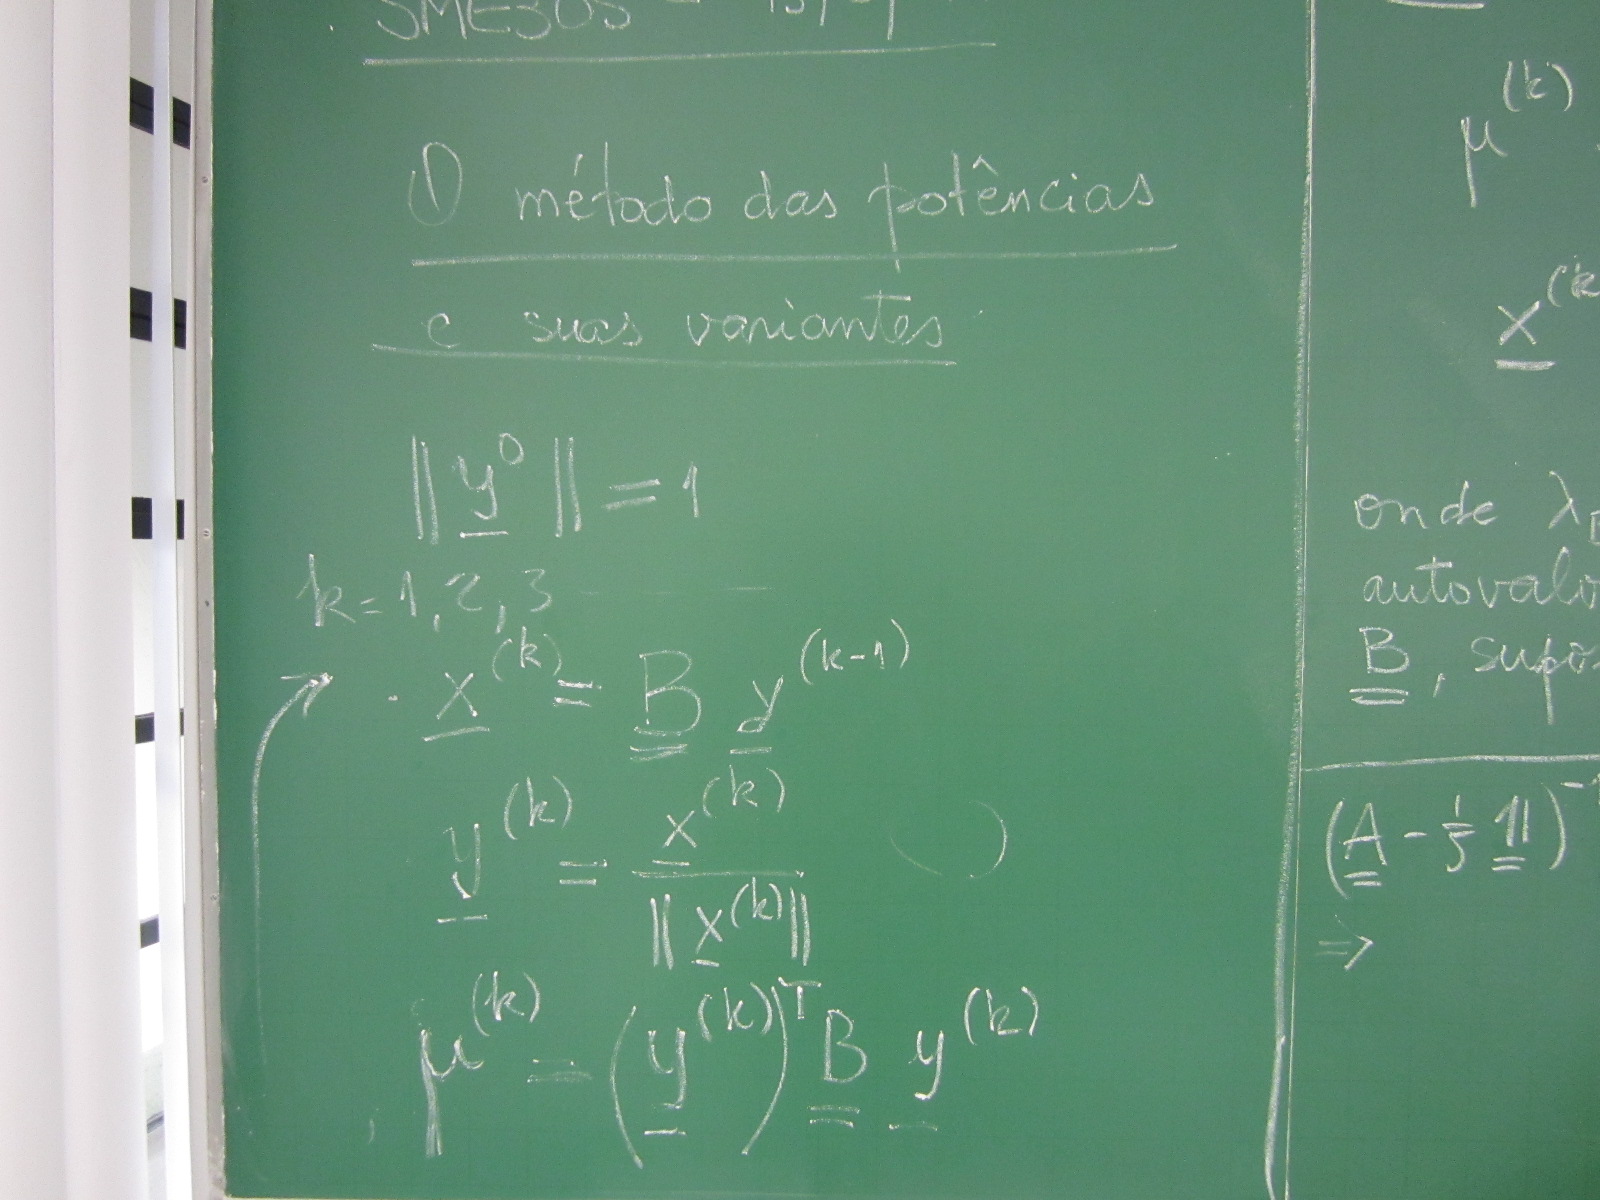 ① método das potências
e suas variantes
‖y⁰‖ = 1
k = 1, 2, 3
x^(k) = B y^(k-1)
y^(k) = x^(k) / ‖x^(k)‖
μ^(k) = (y^(k))^T B y^(k)
μ^(k)
x^(k
onde λ
autovalo
B, supo
(A - 1/5 𝟙)^-1
⇒